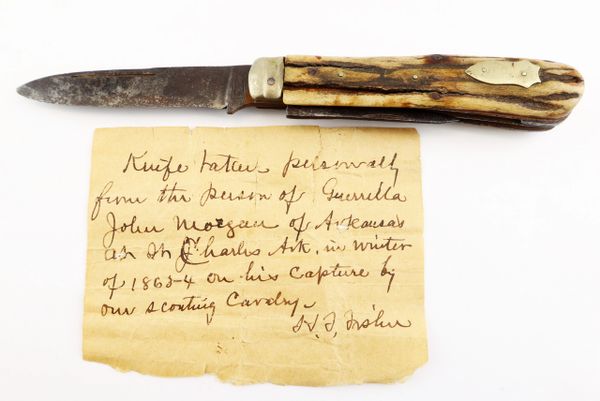 Knife taken personally
from the person of Guerrilla
John Morgan of Arkansas
at St Charles Ark. in winter
of 1863-4 on his capture by
our scouting Cavalry.
Fisher